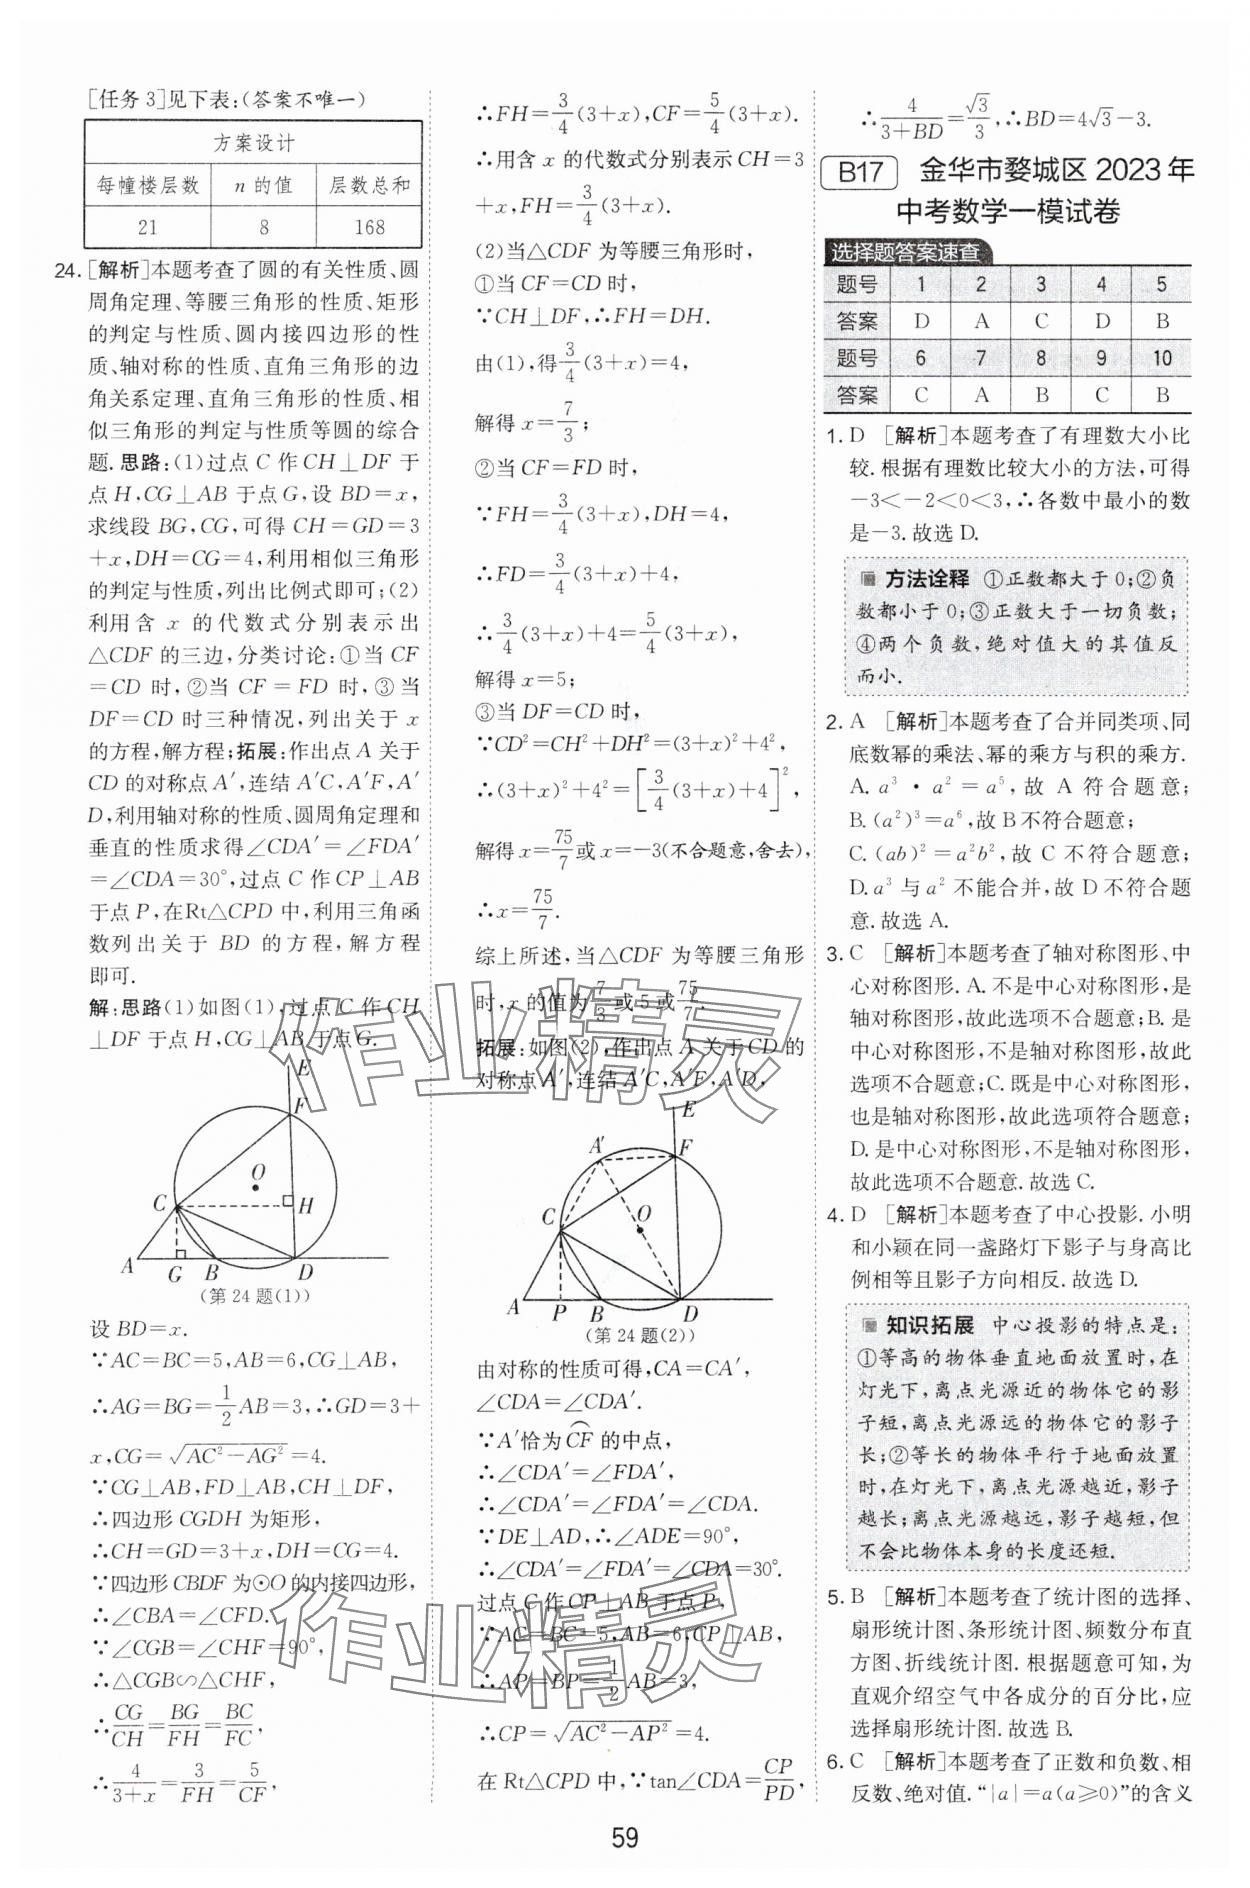 [任务3]见下表:(答案不唯一)
方案设计
每幢楼层数 n的值 层数总和
21 8 168
24. [解析]本题考查了圆的有关性质、圆
周角定理、等腰三角形的性质、矩形
的判定与性质、圆内接四边形的性
质、轴对称的性质、直角三角形的边
角关系定理、直角三角形的性质、相
似三角形的判定与性质等圆的综合
题. 思路:(1)过点C作CH⊥DF于
点H,CG⊥AB于点G,设BD=x,
求线段BG,CG,可得CH=GD=3
+x,DH=CG=4,利用相似三角形
的判定与性质,列出比例式即可;(2)
利用含x的代数式分别表示出
△CDF的三边,分类讨论:①当CF
=CD时,②当CF=FD时,③当
DF=CD时三种情况,列出关于x
的方程,解方程;拓展:作出点A关于
CD的对称点A′,连结A′C,A′F,A′
D,利用轴对称的性质、圆周角定理和
垂直的性质求得∠CDA′=∠FDA′
=∠CDA=30°,过点C作CP⊥AB
于点P,在Rt△CPD中,利用三角函
数列出关于BD的方程,解方程
即可.
解:思路(1)如图(1),过点C作CH
⊥DF于点H,CG⊥AB于点G.
E
F
O
C
H
A G B D
(第24题(1))
设BD=x.
∵AC=BC=5,AB=6,CG⊥AB,
∴AG=BG=1/2AB=3,∴GD=3+
x,CG=√(AC²−AG²)=4.
∵CG⊥AB,FD⊥AB,CH⊥DF,
∴四边形CGDH为矩形,
∴CH=GD=3+x,DH=CG=4.
∵四边形CBDF为⊙O的内接四边形,
∴∠CBA=∠CFD.
∵∠CGB=∠CHF=90°,
∴△CGB∽△CHF,
∴CG/CH=BG/FH=BC/FC,
∴4/(3+x)=3/FH=5/CF,
∴FH=3/4(3+x),CF=5/4(3+x).
∴用含x的代数式分别表示CH=3
+x,FH=3/4(3+x).
(2)当△CDF为等腰三角形时,
①当CF=CD时,
∵CH⊥DF,∴FH=DH.
由(1),得3/4(3+x)=4,
解得x=7/3;
②当CF=FD时,
∵FH=3/4(3+x),DH=4,
∴FD=3/4(3+x)+4,
∴3/4(3+x)+4=5/4(3+x),
解得x=5;
③当DF=CD时,
∵CD²=CH²+DH²=(3+x)²+4²,
∴(3+x)²+4²=[3/4(3+x)+4]²,
解得x=75/7或x=−3(不合题意,舍去),
∴x=75/7.
综上所述,当△CDF为等腰三角形
时,x的值为7/3或5或75/7.
拓展:如图(2),作出点A关于CD的
对称点A′,连结A′C,A′F,A′D,
E
A′ F
C O
A P B D
(第24题(2))
由对称的性质可得,CA=CA′,
∠CDA=∠CDA′.
∵A′恰为⌒CF的中点,
∴∠CDA′=∠FDA′,
∴∠CDA′=∠FDA′=∠CDA.
∵DE⊥AD,∴∠ADE=90°,
∴∠CDA′=∠FDA′=∠CDA=30°.
过点C作CP⊥AB于点P,
∵AC=BC=5,AB=6,CP⊥AB,
∴AP=BP=1/2AB=3,
∴CP=√(AC²−AP²)=4.
在Rt△CPD中,∵tan∠CDA=CP/PD,
∴4/(3+BD)=√3/3,∴BD=4√3−3.
B17 金华市婺城区2023年
中考数学一模试卷
选择题答案速查
题号 1 2 3 4 5
答案 D A C D B
题号 6 7 8 9 10
答案 C A B C B
1. D [解析]本题考查了有理数大小比
较. 根据有理数比较大小的方法,可得
−3<−2<0<3,∴各数中最小的数
是−3. 故选D.
方法诠释 ①正数都大于0;②负
数都小于0;③正数大于一切负数;
④两个负数,绝对值大的其值反
而小.
2. A [解析]本题考查了合并同类项、同
底数幂的乘法、幂的乘方与积的乘方.
A. a³·a²=a⁵,故A符合题意;
B. (a²)³=a⁶,故B不符合题意;
C. (ab)²=a²b²,故C不符合题意;
D. a³与a²不能合并,故D不符合题
意. 故选A.
3. C [解析]本题考查了轴对称图形、中
心对称图形. A. 不是中心对称图形,是
轴对称图形,故此选项不合题意;B. 是
中心对称图形,不是轴对称图形,故此
选项不合题意;C. 既是中心对称图形,
也是轴对称图形,故此选项符合题意;
D. 是中心对称图形,不是轴对称图形,
故此选项不合题意. 故选C.
4. D [解析]本题考查了中心投影. 小明
和小颖在同一盏路灯下影子与身高比
例相等且影子方向相反. 故选D.
知识拓展 中心投影的特点是:
①等高的物体垂直地面放置时,在
灯光下,离点光源近的物体它的影
子短,离点光源远的物体它的影子
长;②等长的物体平行于地面放置
时,在灯光下,离点光源越近,影子
越长;离点光源越远,影子越短,但
不会比物体本身的长度还短.
5. B [解析]本题考查了统计图的选择、
扇形统计图、条形统计图、频数分布直
方图、折线统计图. 根据题意可知,为
直观介绍空气中各成分的百分比,应
选择扇形统计图. 故选B.
6. C [解析]本题考查了正数和负数、相
反数、绝对值. “|a|=a(a≥0)”的含义
59
作业精灵
作业精灵